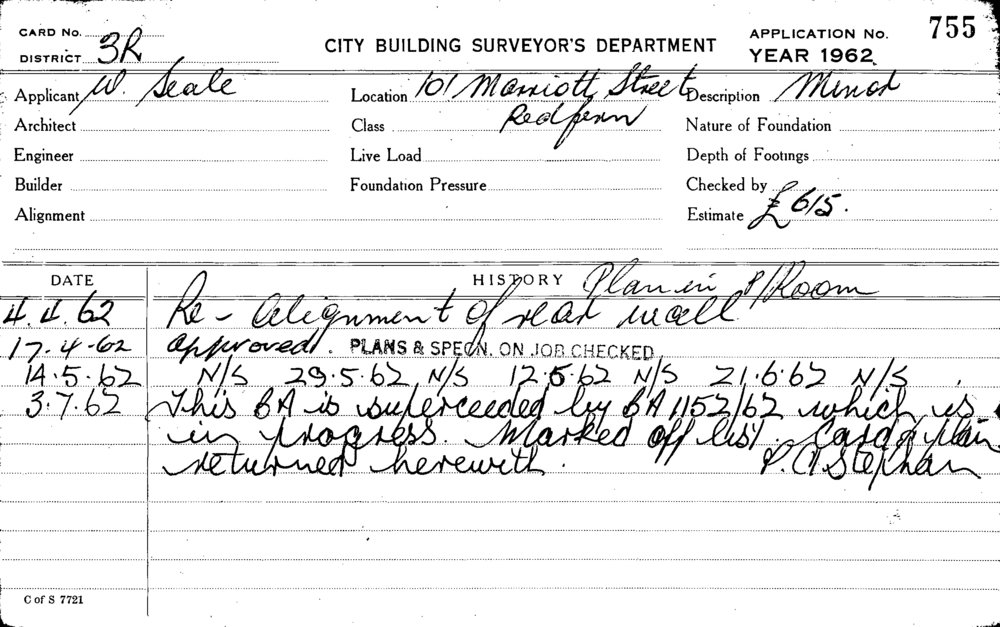 CARD No.
DISTRICT 3R
CITY BUILDING SURVEYOR'S DEPARTMENT
APPLICATION No. 755
YEAR 1962
Applicant W. Seale
Location 101 Marriott Street
Redfern
Description Minor
Architect
Class
Nature of Foundation
Engineer
Live Load
Depth of Footings
Builder
Foundation Pressure
Checked by
Alignment
Estimate £615.
DATE
HISTORY Plan in P/Room
4.4.62 Re-Alignment of rear wall
17-4-62 approved. PLANS & SPECN. ON JOB CHECKED
14.5.62 N/S 29.5.62 N/S 12.6.62 N/S 21.6.62 N/S.
3.7.62 This BA is superceeded by BA 1152/62 which is
in progress. Marked off list. Card & plan
returned herewith. P. A Stephan
C of S 7721